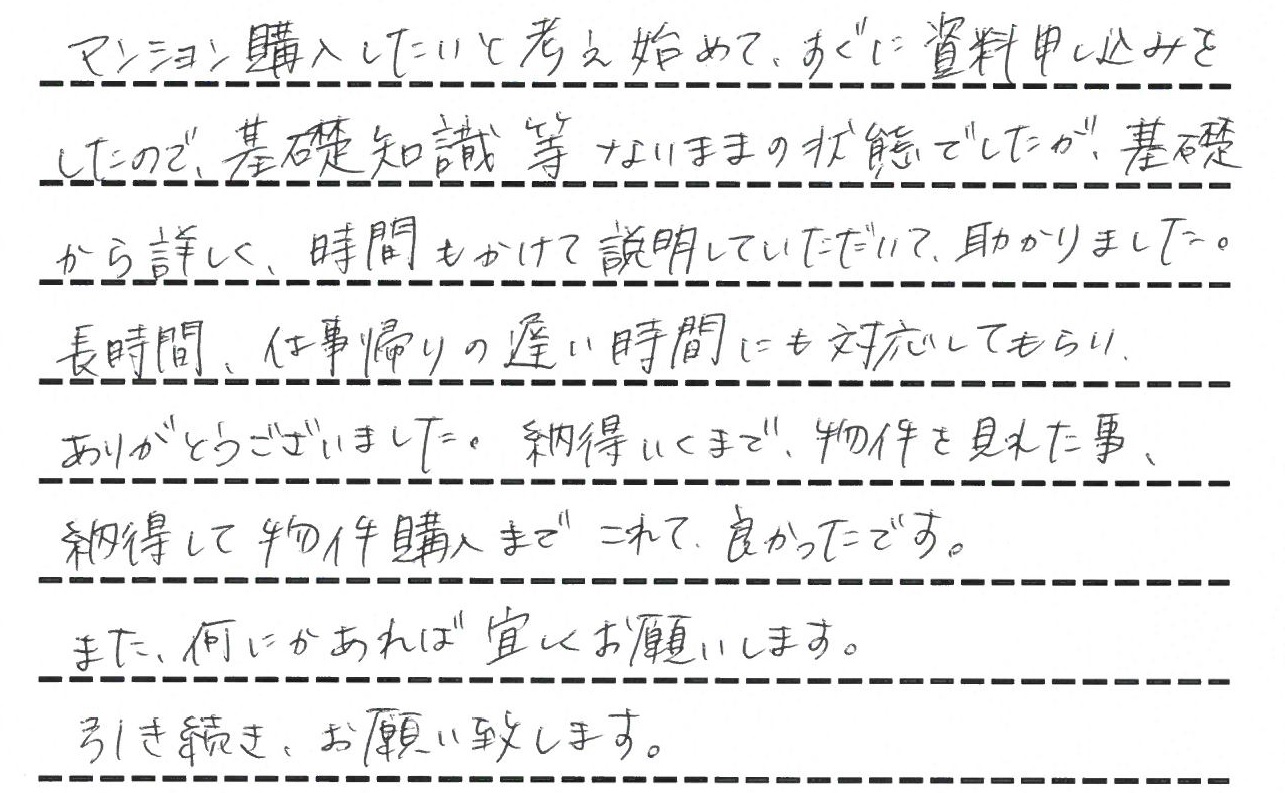 マンション購入したいと考え始めて、すぐに資料申し込みを
したので、基礎知識等ないままの状態でしたが、基礎
から詳しく、時間もかけて説明していただいて、助かりました。
長時間、仕事帰りの遅い時間にも対応してもらい、
ありがとうございました。納得いくまで、物件を見れた事、
納得して物件購入までこれて、良かったです。
また、何にかあれば宜しくお願いします。
引き続き、お願い致します。